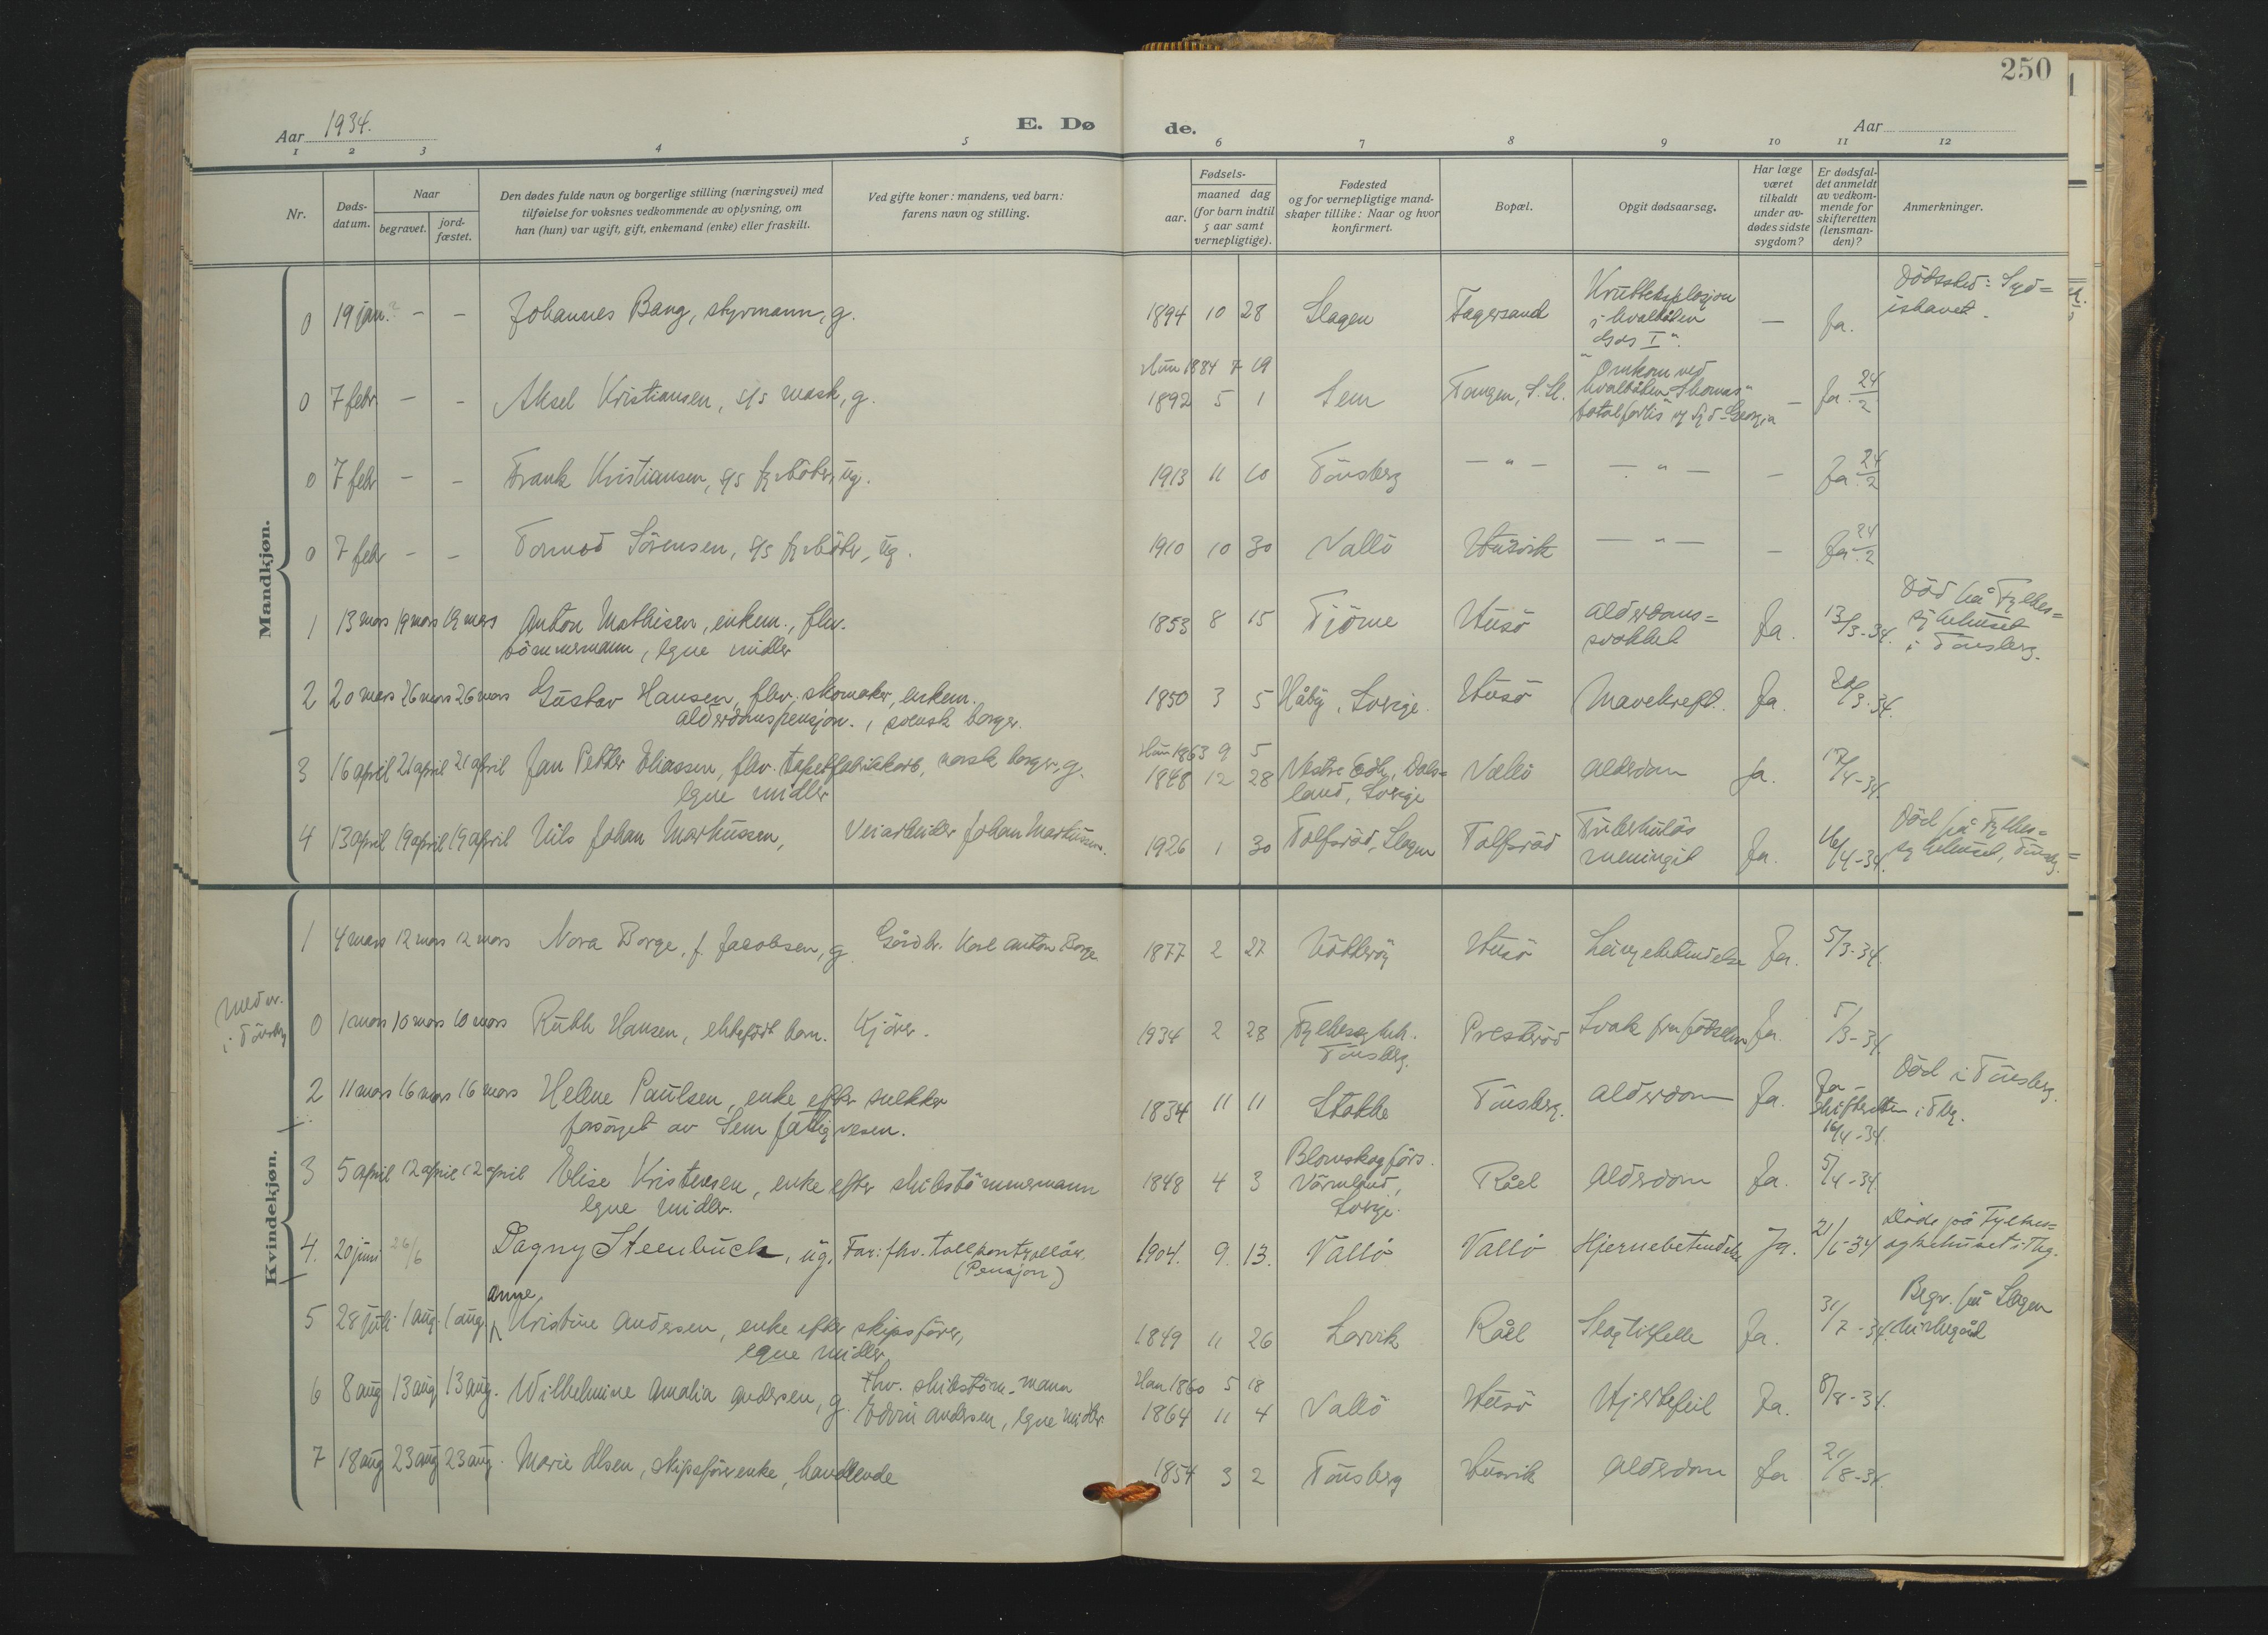 250
Aar 1934.
E. Dø de.
Aar
1 2 3 4 5 6 7 8 9 10 11 12
Nr.
Døds-
datum.
Naar
begravet.
jord-
fæstet.
Den dødes fulde navn og borgerlige stilling (næringsvei) med
tilføielse for voksnes vedkommende av oplysning, om
han (hun) var ugift, gift, enkemand (enke) eller fraskilt.
Ved gifte koner: mandens, ved barn:
farens navn og stilling.
Fødsels-
aar.
maaned dag
(for barn indtil
5 aar samt
vernepligtige).
Fødested
og for vernepligtige mand-
skaper tillike: Naar og hvor
konfirmert.
Bopæl.
Opgit dødsaarsag.
Har læge
været
tilkaldt
under av-
dødes sidste
sygdom?
Er dødsfal-
det anmeldt
av vedkom-
mende for
skifteretten
(lensman-
den)?
Anmerkninger.
Mandkjøn.
0 19 jan.? – – Johannes Bang, styrmann, g. 1894 10 28 Slagen Fagersand Krutteksplosjon
i hvalbåten
"Gos I". – Ja. Dödssted: Syd=
ishavet.
Hun 1884 7 19
0 7 febr – – Aksel Kristiansen, s/s mask, g. 1892 5 1 Sem Tangen, S. Sl. Omkom ved
hvalbåten "Thomas"
totalforlis v/ Syd-Georgia – Ja. 24/2
0 7 febr – – Frank Kristiansen, s/s fyrböter, ug. 1913 11 10 Tönsberg – " – – " – – Ja. 24/2
0 7 febr – – Tormod Sörensen, s/s fyrböter, ug. 1910 10 30 Vallö Husvik – " – – Ja. 24/2
1 13 mars 19 mars 19 mars Anton Mathisen, enkem., fhv.
tömmermann, egne midler 1853 8 15 Tjörne Husö alderdoms=
svakhet Ja. 13/3-34. Död på Fylkes=
sykehuset
i Tönsberg.
2 20 mars 26 mars 26 mars Gustav Hansen, fhv. skomaker, enkem.
alderdomspensjon., svensk borger. 1850 3 5 Håby, Sverige. Husö Mavekreft. Ja. 20/3-34.
Hun 1863 9 5
3 16 april 21 april 21 april Jan Petter Eliassen, fhv. tapetfabrikkarb., norsk borger, g.
egne midler 1848 12 28 Vestre Ed, Dals=
land, Sverige Vallö alderdom ja. 17/4-34.
4 13 april 19 april 19 april Nils Johan Markussen, Veiarbeider Johan Markussen. 1926 1 30 Tolfsröd, Slagen Tolfsröd Tuberkulös
meningit Ja. 16/4-34. Död på Fylkes=
sykehuset, Tönsberg.
Kvindekjøn.
1 4 mars 12 mars 12 mars Nora Borge, f. Jacobsen, g. Gårdbr. Karl Anton Borge 1877 2 27 Nötteröy Husö Lungebetendelse Ja. 5/3-34.
Medvr.
i Tönsberg
0 1 mars 10 mars 10 mars Ruth Hansen, ektefödt barn. Kjörer. 1934 2 28 Fylkessykeh.
Tönsberg. Presteröd Svak fra födselen Ja. 5/3-34.
2 11 mars 16 mars 16 mars Helene Paulsen, enke efter snekker
forsörget av Sem fattigvesen. 1834 11 11 Stokke Tönsberg. alderdom Ja. Ja –
Skifteretten i Tbg.
16/4-34. Död i Tönsberg.
3 5 april 12 april 12 april Elise Kristensen, enke efter skibstömmermann
egne midler. 1848 4 3 Blomskogförs.
Värmland,
Sverige. Råel Alderdom Ja. 5/4-34
4. 20 juni 26/6 Dagny Steenbuch, ug. Far: fhv. tollkontrollör.
(Pensjon) 1904. 9. 13. Vallö Vallö Hjernebetendelse Ja. 21/6-34 Döde på Fylkes=
sykehuset i Tbg.
5 28 juli 1 aug. 1 aug. Anne
Kristine Andersen, enke efter skipsförer,
egne midler. 1849 11 26 Larvik Råel Slagtilfelle Ja. 31/7-34. Begr. på Slagen
kirkegård
6 8 aug 13 aug 13 aug. Wilhelmine Amalia Andersen, g. Fhv. skibstöm.mann
Edvin Andersen, egne midler. Han 1860 5 18
1864 11 4 Vallö Husö Hjertefeil Ja. 8/8-34.
7 18 aug 23 aug 23 aug. Marie Olsen, skipsförerenke, handlende 1854 3 2 Tönsberg Husvik Alderdom Ja 21/8-34.